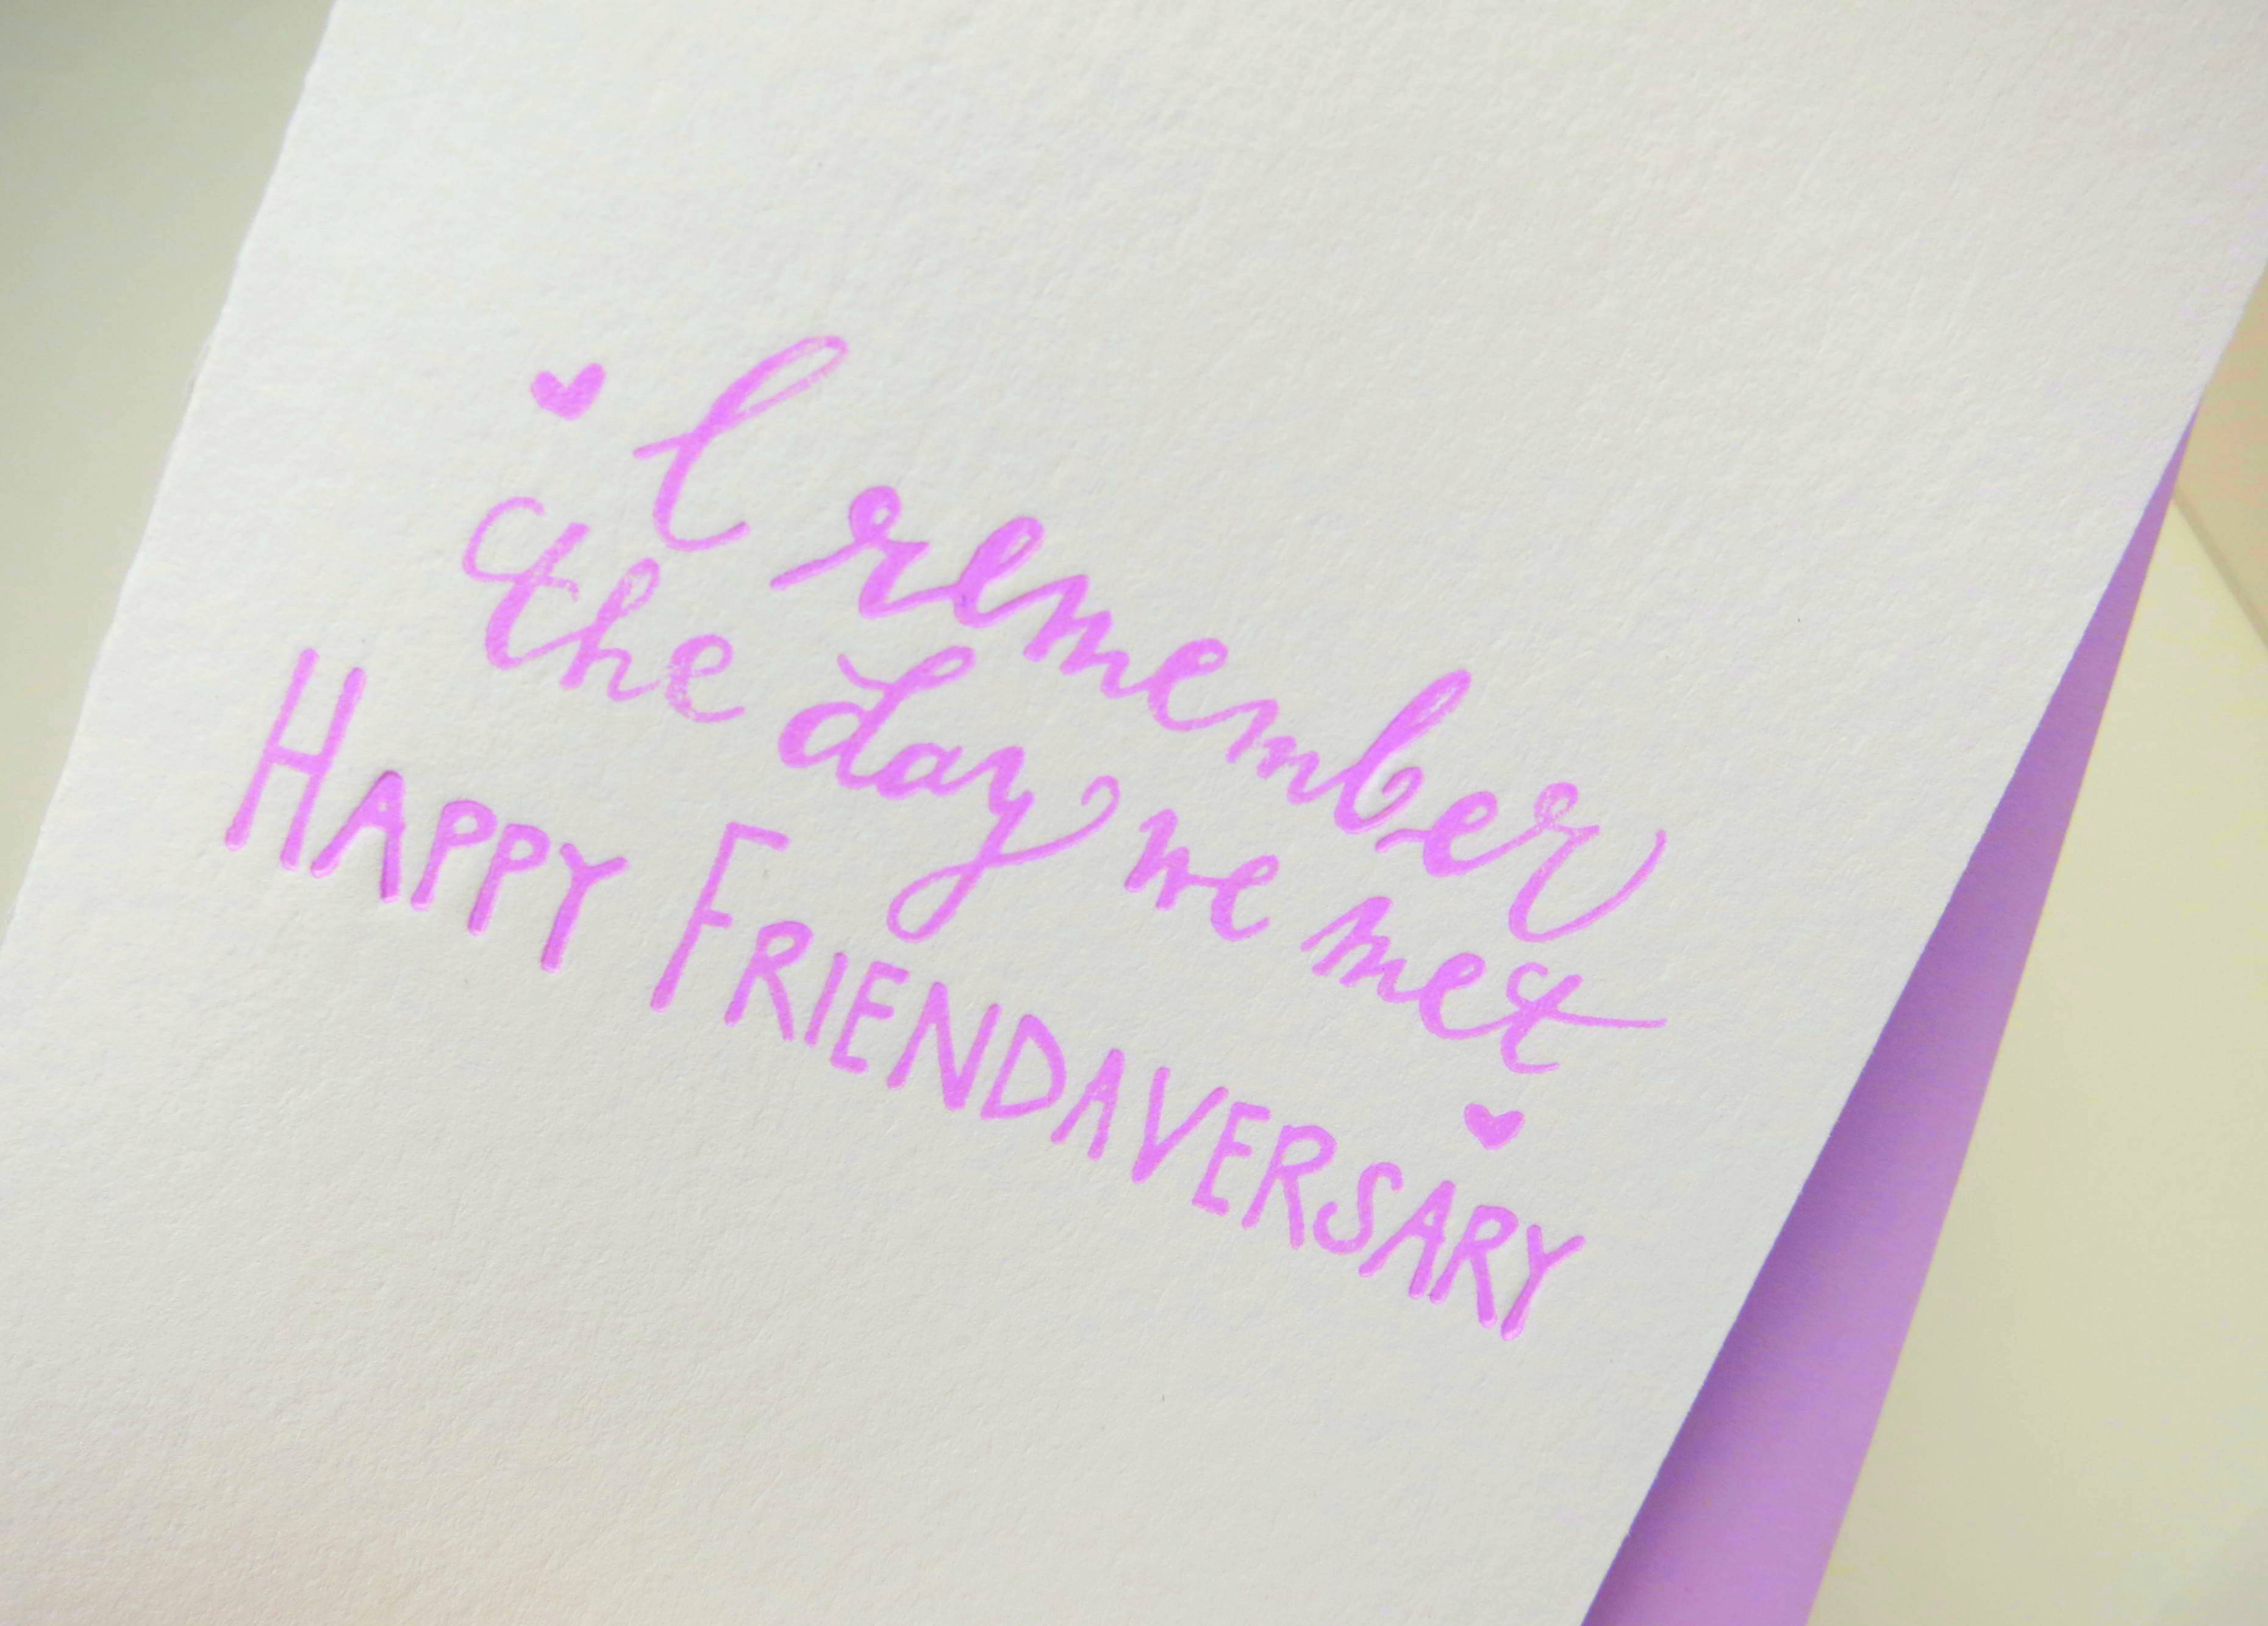 I remember
the day we met
HAPPY FRIENDAVERSARY